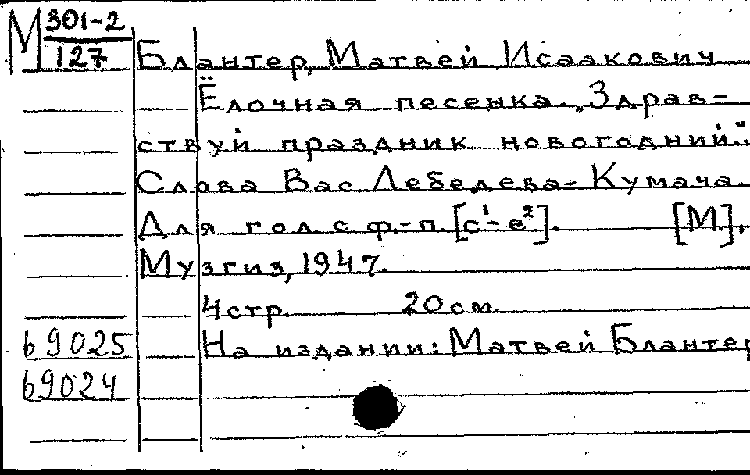 М 301-2
127
Блантер, Матвей Исаакович
Ёлочная песенка. "Здрав-
ствуй праздник новогодний..."
Слова Вас Лебедева-Кумача.
Для гол. с ф.-п. [c¹-e²]. [М],
Музгиз, 1947.
4стр. 20см.
69025 На издании: Матвей Блантер
69024